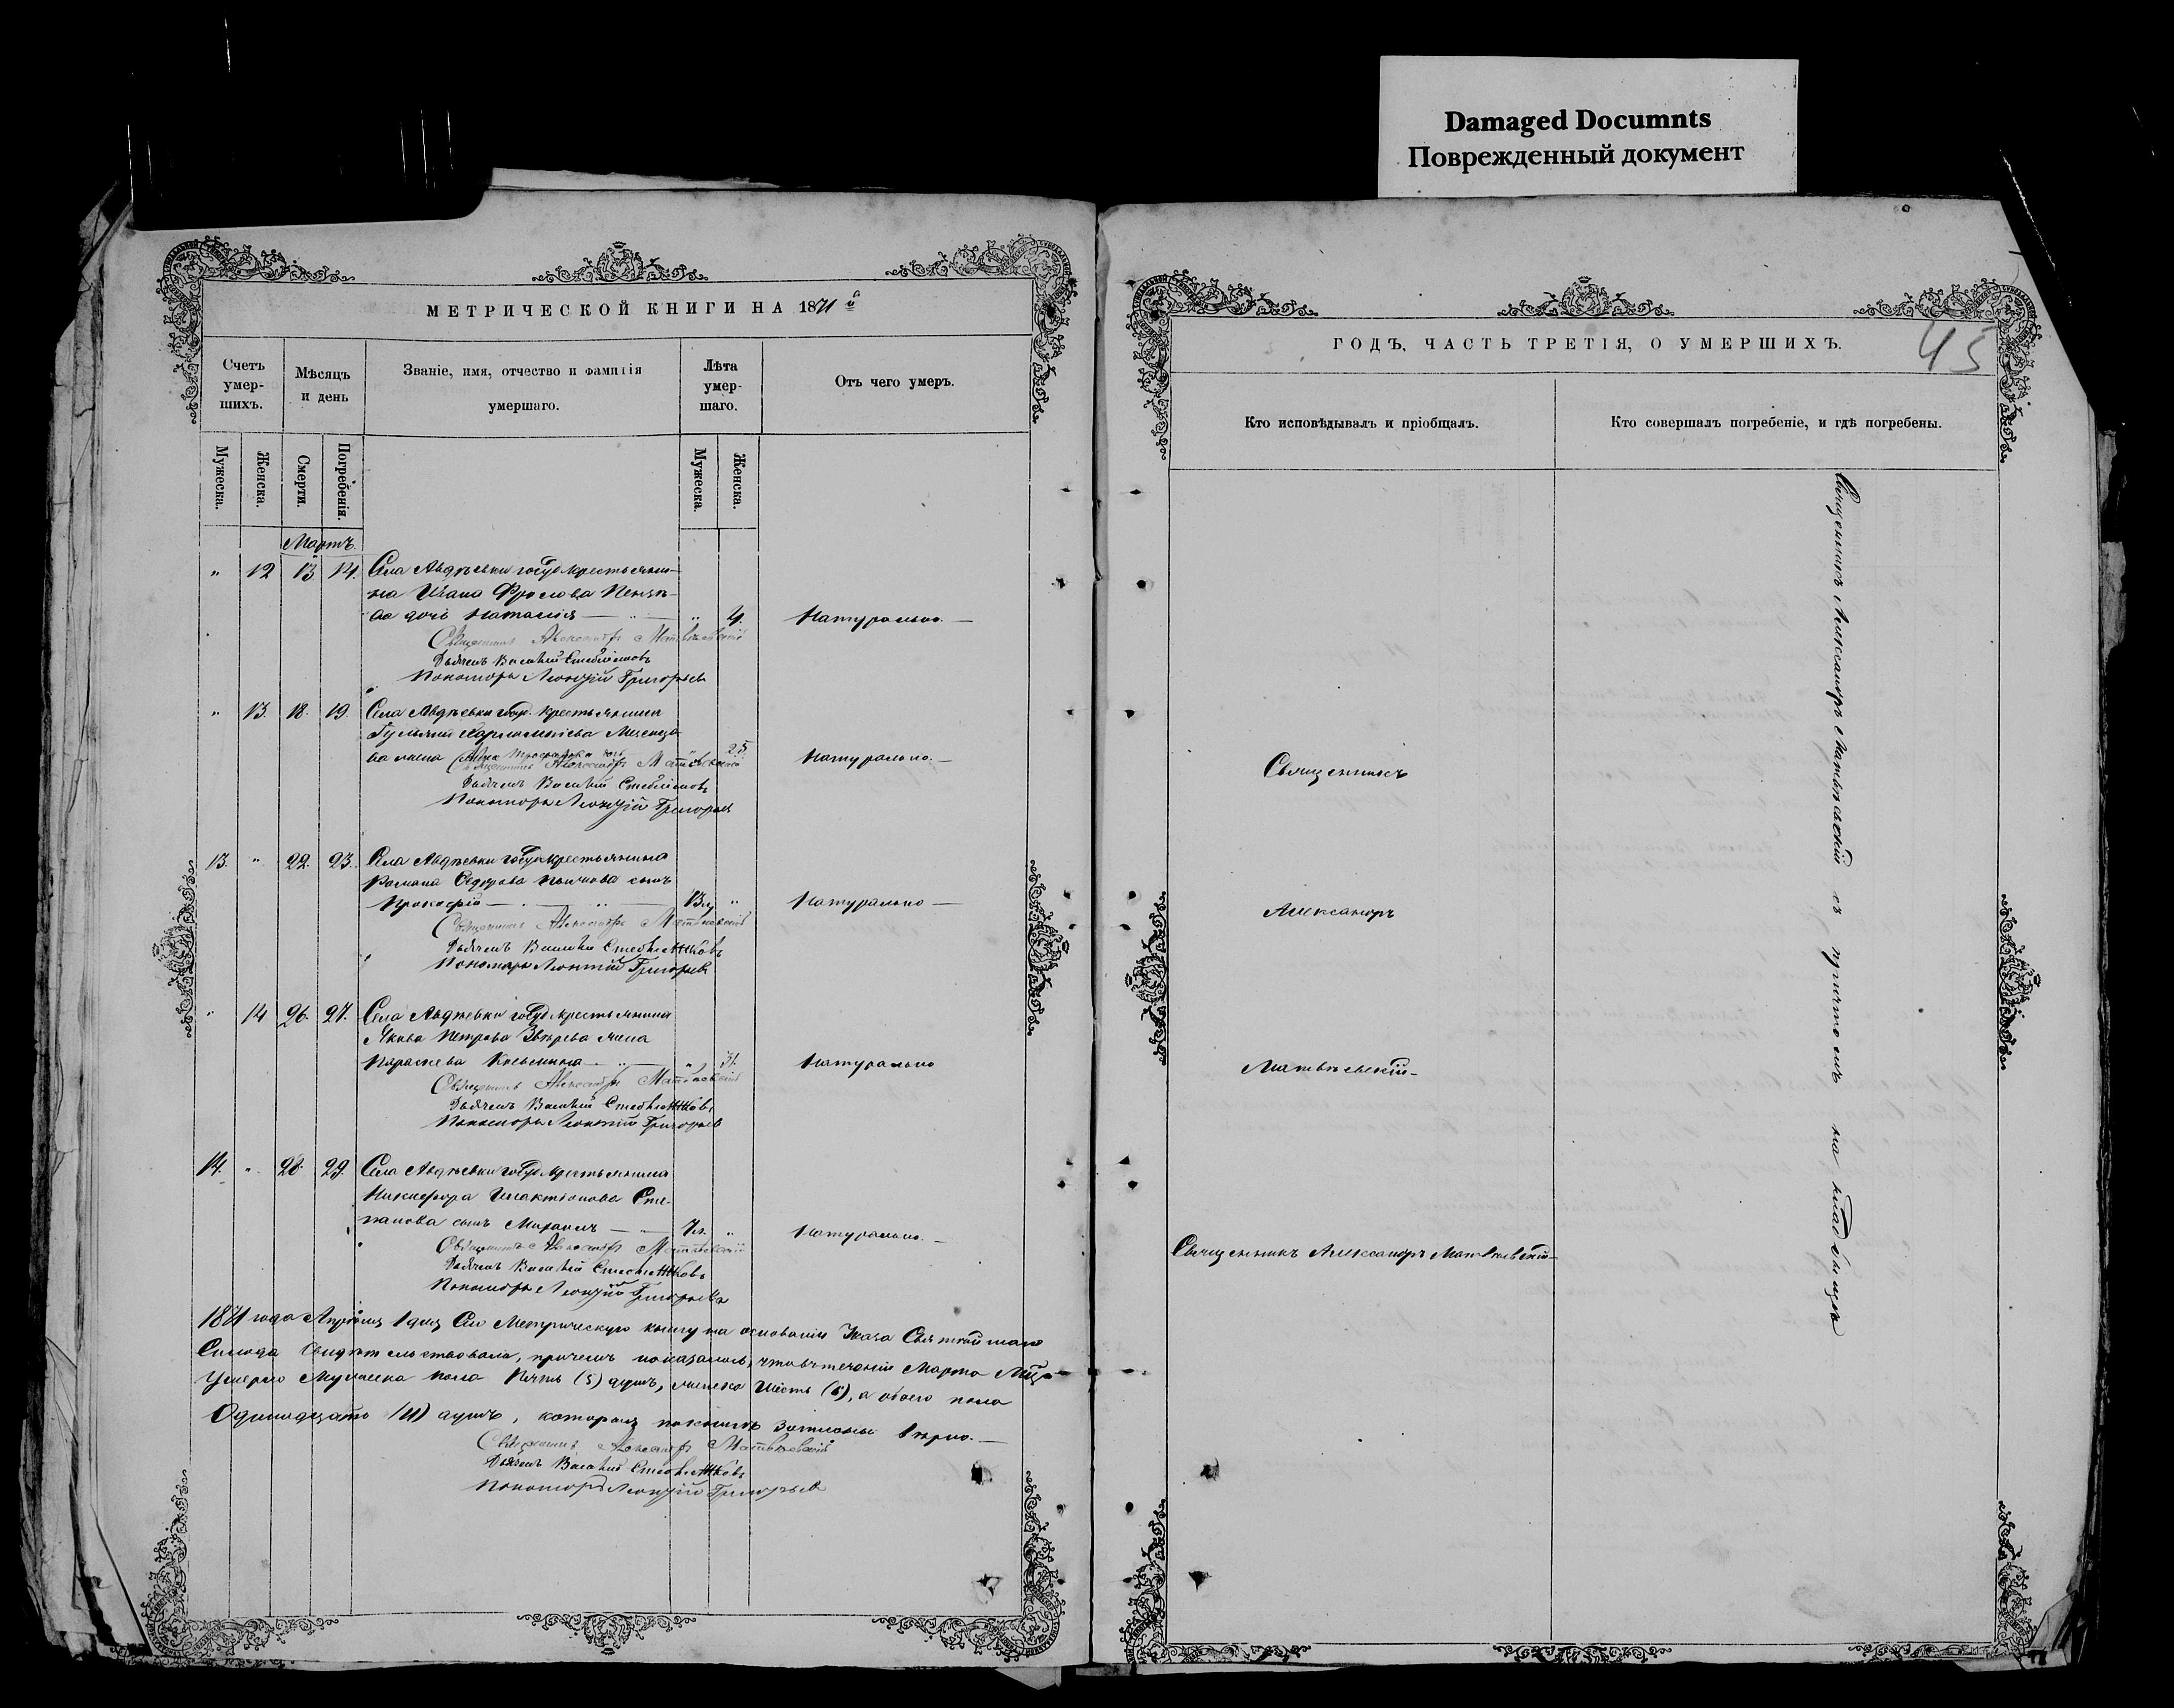 Damaged Documnts
Поврежденный документ
МЕТРИЧЕСКОЙ КНИГИ НА 1871й
Счетъ умер-шихъ.
Мѣсяцъ и день
Званіе, имя, отчество и фамилія
умершаго.
Лѣта умер-шаго.
Отъ чего умеръ.
Мужеска.
Женска.
Смерти.
Погребенія.
Мужеска.
Женска.
Мартъ.
" 12 13 14. Села Авдѣевки госуд. крестьяни-
на Ивана Фролова
дочь Наталія " 4. Натурально.
Священникъ Александръ Матвѣевскій
Дьячекъ Василій
Пономарь Леонтій Григорьевъ
" 13. 18. 19. Села Авдѣевки госуд. крестьянина
ва жена 25. Натурально.
Священникъ Александръ Матвѣевскій
Дьячекъ Василій
Пономарь Леонтій Григорьевъ
13. " 22. 23. Села Авдѣевки госуд. крестьянина
Романа сынъ
Прокофій " Натурально
Священникъ Александръ Матвѣевскій
Дьячекъ Василій
Пономарь Леонтій Григорьевъ
" 14 26. 27. Села Авдѣевки госуд. крестьянина
Якова Петрова Звѣрева жена
Параскева " 31. Натурально
Священникъ Александръ Матвѣевскій
Дьячекъ Василій
Пономарь Леонтій Григорьевъ
14. " 28. 29. Села Авдѣевки госуд. крестьянина
Никифора Сте-
панова сынъ Михаилъ " Натурально.
Священникъ Александръ Матвѣевскій
Дьячекъ Василій
Пономарь Леонтій Григорьевъ
1871 года Апрѣля 1 дня Сію Метрическую книгу на основаніи Указа Святѣйшаго
Синода свидѣтельствовали, причемъ показалось, что въ теченіи Марта м-ца
умерло мужеска пола пять (5) душъ, женска шесть (6), а обоего пола
Одинадцать (11) душъ, которыя записаны вѣрно.
Священникъ Александръ Матвѣевскій
Дьячекъ Василій
Пономарь Леонтій Григорьевъ
ГОДЪ, ЧАСТЬ ТРЕТІЯ, О УМЕРШИХЪ.
45
Кто исповѣдывалъ и пріобщалъ.
Кто совершалъ погребеніе, и гдѣ погребены.
Священникъ
Александръ
Матвѣевскій
Священникъ Александръ Матвѣевскій
Священникъ Александръ Матвѣевскій съ причтомъ на кладбищѣ